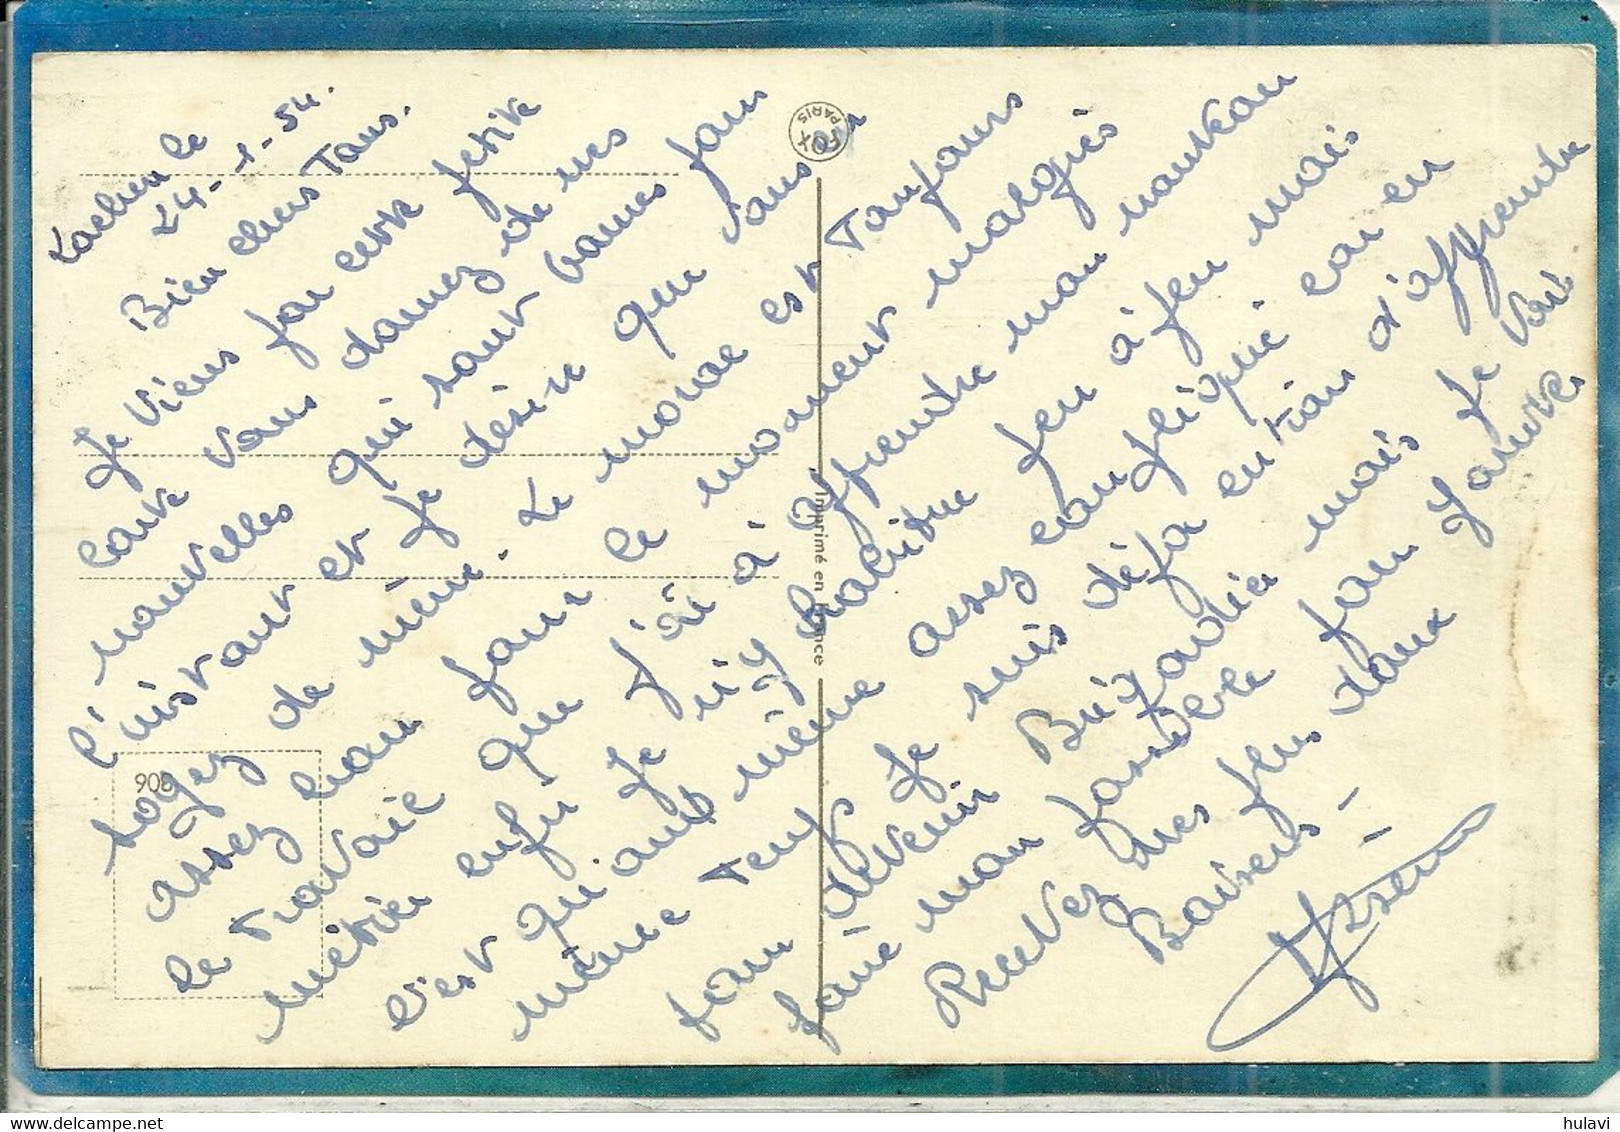 Lachen le
24-1-54.
Bien chers Tous.
Je viens par cette petite
carte vous donnez de mes
nouvelles qui sont bonnes pour
l'instant et je désire que vous
soyez de même. Le moral est toujours
assez bon pour le moment malgrés
le travail que j'ai à apprendre mon nouveau
métier enfin je m'y habitue peu à peu mais
c'est quand même assez compliqué car en
même temps je suis déjà en train d'apprendre
pour devenir Brigadier mais je vais
faire mon possible pour y arriver
Recevez mes plus doux
Baisers -
FOX
PARIS
Imprimé en France
906
hulavi